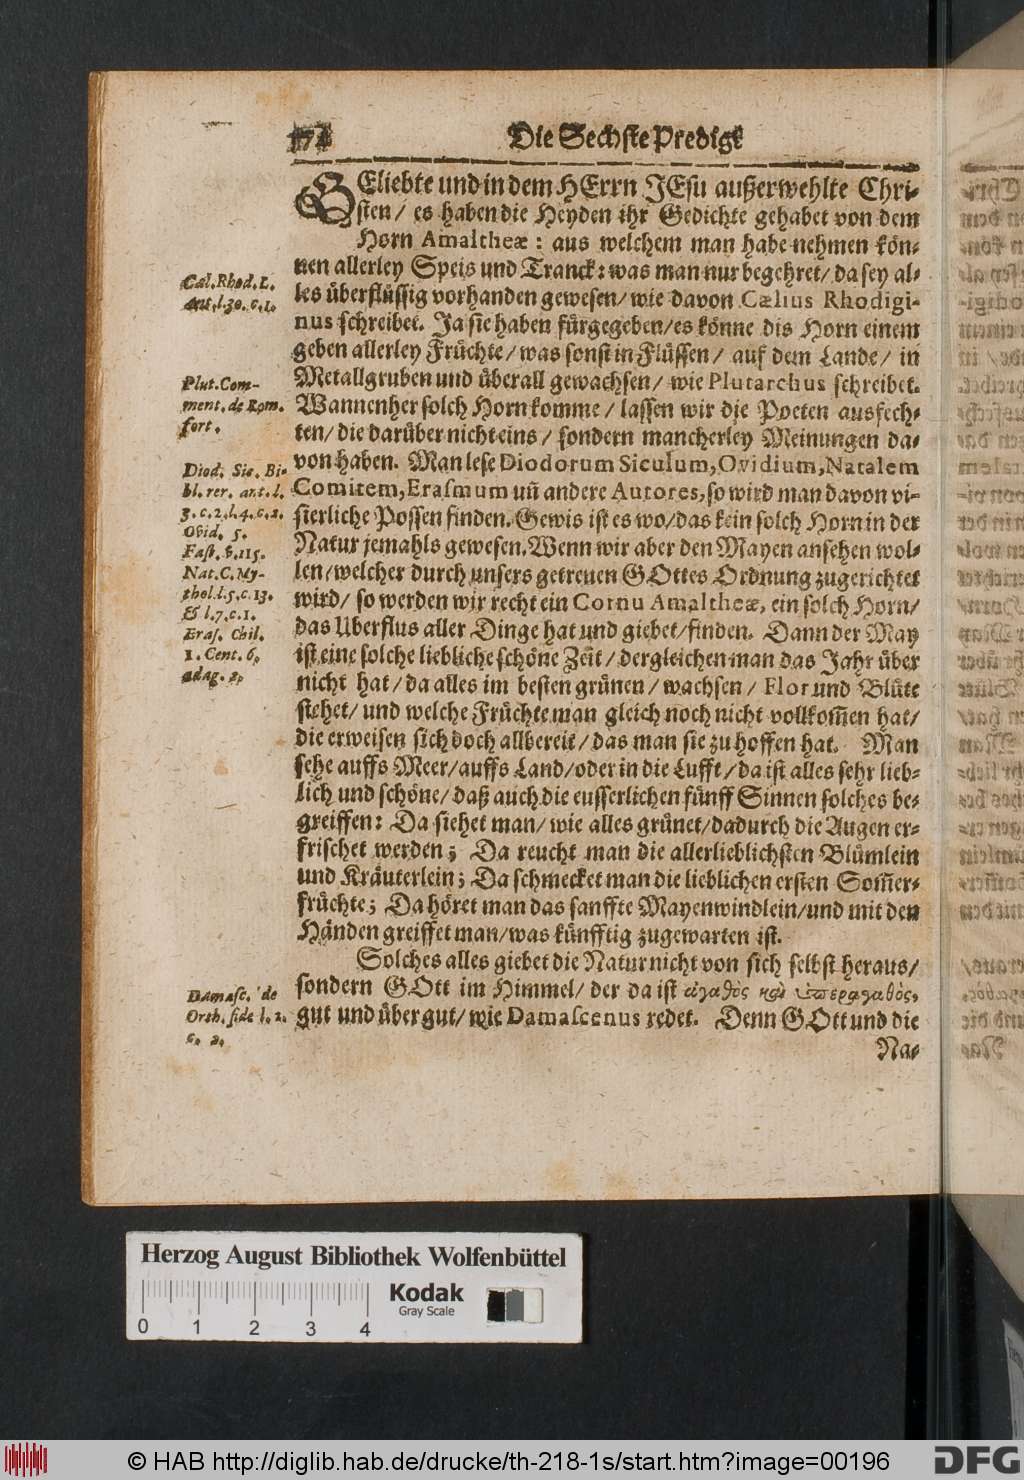 Die Sechste Predigt
GEliebte und in dem HErrn JEsu außerwehlte Chri-
sten/ es haben die Heyden ihr Gedichte gehabet von dem
Horn Amaltheæ: aus welchem man habe nehmen kön-
nen allerley Speis und Tranck: was man nur begehret/ da sey al-
les überflüssig vorhanden gewesen/ wie davon Cælius Rhodigi-
nus schreibet. Ja sie haben fürgegeben/ es könne dis Horn einem
geben allerley Früchte/ was sonst in Flüssen/ auf dem Lande/ in
Metallgruben und überall gewachsen/ wie Plutarchus schreibet.
Wannenher solch Horn komme/ lassen wir die Poeten ausfech-
ten/ die darüber nicht eins/ sondern mancherley Meinungen da-
von haben. Man lese Diodorum Siculum, Ovidium, Natalem
Comitem, Erasmum uñ andere Autores, so wird man davon vi-
sierliche Possen finden. Gewis ist es wo/ das kein solch Horn in der
Natur jemahls gewesen. Wenn wir aber den Mayen ansehen wol-
len/ welcher durch unsers getreuen GOttes Ordnung zugerichtet
wird/ so werden wir recht ein Cornu Amaltheæ, ein solch Horn/
das Uberflus aller Dinge hat und giebet/ finden. Dann der May
ist eine solche liebliche schöne Zeit/ dergleichen man das Jahr über
nicht hat/ da alles im besten grünen/ wachsen/ Flor und Blüte
stehet/ und welche Früchte man gleich noch nicht vollkom̃en hat/
die erweisen sich doch allbereit/ das man sie zu hoffen hat. Man
sehe auffs Meer/ auffs Land/ oder in die Lufft/ da ist alles sehr lieb-
lich und schöne/ daß auch die eusserlichen fünff Sinnen solches be-
greiffen: Da siehet man/ wie alles grünet/ dadurch die Augen er-
frischet werden; Da reucht man die allerlieblichsten Blümlein
und Kräuterlein; Da schmecket man die lieblichen ersten Som̃er-
früchte; Da höret man das sanffte Mayenwindlein/ und mit den
Händen greiffet man/ was künfftig zugewarten ist.
Solches alles giebet die Natur nicht von sich selbst heraus/
sondern GOtt im Himmel/ der da ist ἀγαθὸς καὶ ὑπεραγαθὸς,
gut und über gut/ wie Damascenus redet. Denn GOtt und die
Na-
Cæl. Rhod. L.
Ant. l. 30. c. 1.
Plut. Com-
ment. de Rom.
fort.
Diod. Sic. Bi-
bl. rer. ant. l.
3. c. 2. l. 4. c. 2.
Ovid. 5.
Fast. v. 115.
Nat. C. My-
thol. l. 5. c. 13.
& l. 7. c. 1.
Eras. Chil.
1. Cent. 6.
adag. 2.
Damasc. de
Orth. fide l. 2.
c. 2.
Herzog August Bibliothek Wolfenbüttel
Kodak
Gray Scale
0 1 2 3 4
© HAB http://diglib.hab.de/drucke/th-218-1s/start.htm?image=00196
DFG